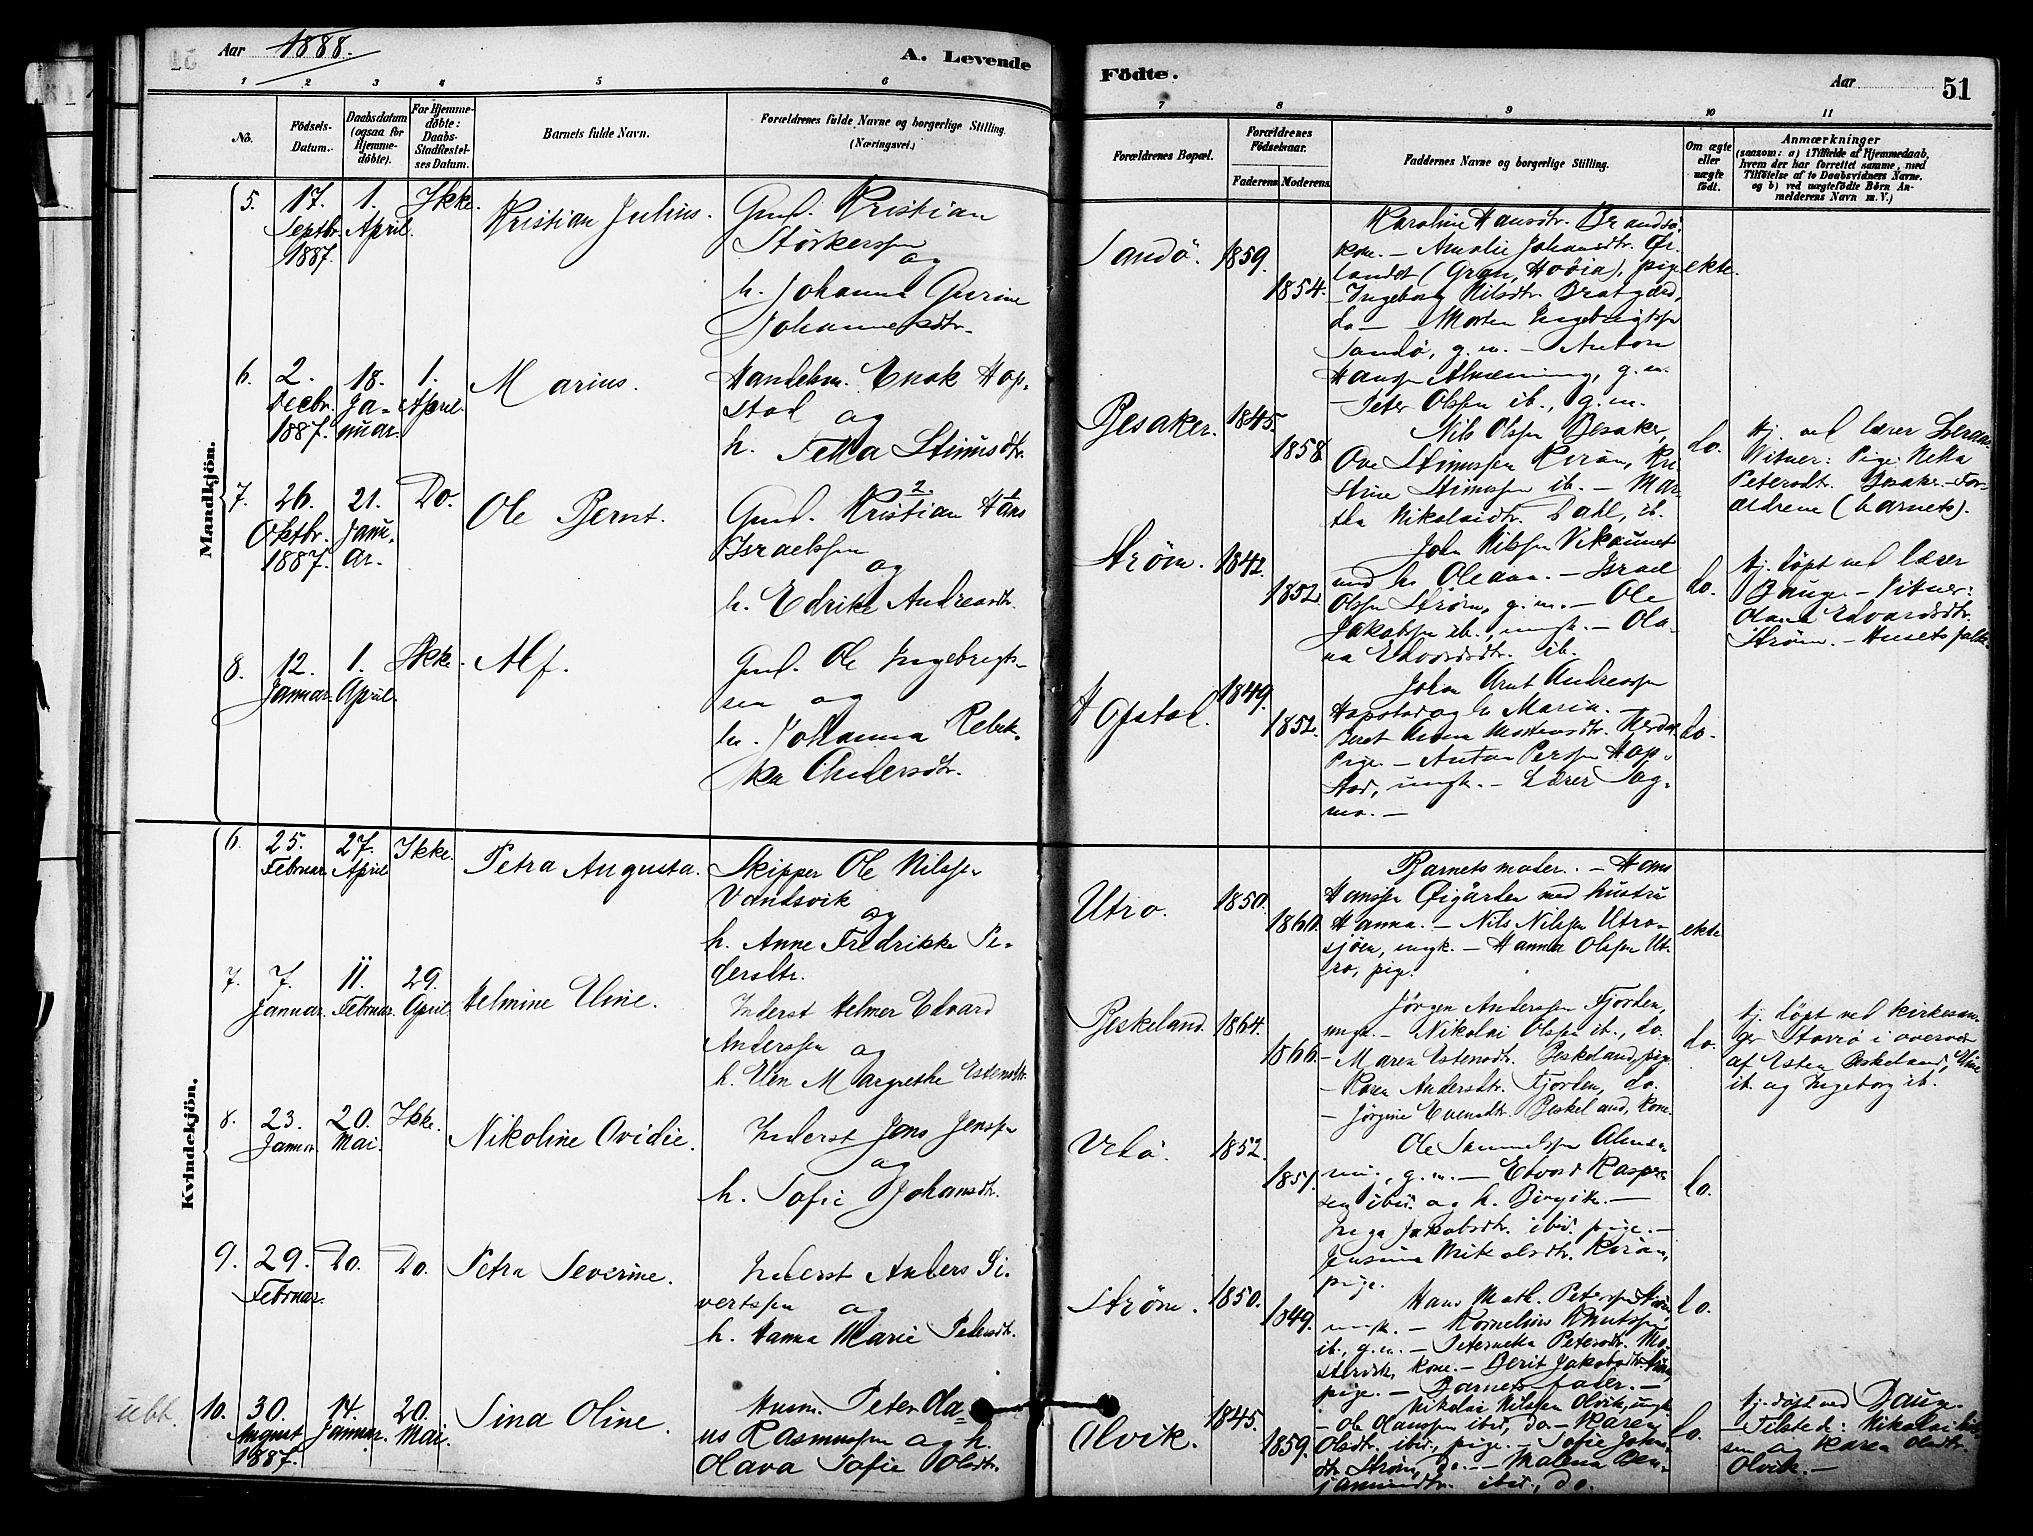 Aar 1888.
A. Levende
Födte.
Aar
51
1 2 3 4 5 6
7 8 9 10 11
No.
Födsels-
Datum.
Daabsdatum
(ogsaa for
Hjemme-
döbte).
For Hjemme-
döbte:
Daabs-
Stadfæstel-
ses Datum.
Barnets fulde Navn.
Forældrenes fulde Navne og borgerlige Stilling.
(Næringsvei.)
Forældrenes Bopæl.
Forældrenes
Födselsaar.
Faderens
Moderens.
Faddernes Navne og borgerlige Stilling.
Om ægte
eller
uægte
födt.
Anmærkninger
(saasom: a) i Tilfælde af Hjemmedaab,
hvem der har forrettet samme, med
Tilföielse af to Daabsvidners Navne.
og b) ved uægtefödte Börn An-
melderens Navn m. V.)
Mandkjön.
5. 17. Septbr. 1887. 1. April. Ikke. Kristian Julius.
Gmd. Kristian
Størkerssen
og
h. Johanna Gurine
Johannesdtr.
Sandø. 1859. 1854.
Karoline Hansdtr. Brandsø,
kone. – Amalie Johansdtr. Ør-
landet (Gran, Høøia), pige
– Ingeborg Nilsdtr. Bratgjerd,
do – Morten Ingebrigtssen
Sandø, g.m. – Anton
Hanssen Almenning, g.m.
– Peter Olssen ib., g.m.
ekte.
6. 2. Decbr. 1887. 18. Januar. 1. April. Marius.
Handelsm. Enok Hop-
stad og
h. Petra Stinusdtr.
Besaker. 1845. 1858
Nils Olssen Besaker,
Ove Stinussen Kiran, Kri-
stine Stinussen ib. – Mar-
tha Nikolaidtr. Dahl, ib.
do.
Hj. ved lærer
Vitner: Pige Netta
Petersdtr. Besaker – For-
ældrene (barnets).
7. 26. Oktbr. 1887. 21. Janu-
ar. Do. Ole Bernt.
2. 1
Gmd. Kristian Hans
Israelssen
og
h. Edrike Andreasdtr.
Strøm. 1842. 1852.
John Nilssen Vikaunet
med h. Oleana. – Israel
Olssen Strøm, g.m. – Ole
Jakobssen ib., ungk. – Ola-
na Edvardsdtr. ib.
do.
Hj. døpt ved lærer
Bauge – Vitner:
Olana Edvardsdtr.
Strøm. – Husets folk.
8. 12. Januar. 1. April. Ikke. Alf.
Gmd. Ole Ingebrigts-
sen og
h. Johanna Rebek-
ka Andersdtr.
Hopstad. 1849. 1852.
John Arnt Andreassen
Hopstad og h. Maria. –
Beret Anna Mortensdtr.
Pige. – Anton Perssen Hop-
stad, ungk. – Lærer Sag-
mo. –
do.
Kvindekjön.
6. 25. Februar. 27. April Ikke. Petra Augusta.
Skipper Ole Nilssen
Vandsvik
og
h. Anne Fredrikke Pe-
dersdtr.
Utro. 1850. 1860.
Barnets moder. – Hans
Hanssen Øigården med hustru
Hanna. – Nils Nilssen Utro-
sjøen, ungk. – Hanna Olssen Ut-
ro, pige.
ekte
7. 7. Januar. 11. Februar. 29. April Helmine Eline.
Inderst Helmer Edvard
Anderssen og
h. Elen Margrethe Estensdtr.
Beskeland. 1864. 1866.
Jørgen Anderssen Fjorden,
ungk. – Nikolai Olssen ib., do.
– Maren Estensdtr. Beskeland, pige
– Karen Andersdtr. Fjorden, do.
– Jørgine Evensdtr. Beskeland, kone.
do.
Hj. døpt ved kirkesan-
ger Stavrø i overvær
af Esten Beskeland, Eline
ib. og Ingeborg ib.
8. 23. Januar. 20. Mai. Ikke. Nikoline Ovidie.
Inderst Jens Jenssen
og
h. Sofie Johansdtr.
Vebø. 1852. 1857.
Ole Samuelssen Almen-
ning, g.m. – Edvard Kasper-
sen ibid. og h. Birgitte. –
Inga Jakobsdtr. ibid. pige. –
Jensina Mikalsdtr. Kiran,
pige.
do.
9. 29. Februar. Do. Do. Petra Severine.
Inderst Anders Si-
vertssen og
h. Hanna Marie Petersdtr.
Strøm. 1850. 1849.
Hans Math. Peterssen Strøm,
ungk. – Kornelius Knutssen
ib., g.m. – Peternetta Petersdtr. Mo-
stervik, kone. – Berit Jakobsdtr. Strøm,
pige. – Barnets fader. –
do.
ubt. 10. 30. August 1887. 14. Januar. 20. Mai. Sina Oline.
Husm. Peter Cla-
us Rasmussen og h.
Olava Sofie Olsdtr.
Olvik. 1845. 1859.
Nikolai Nilssen Olvik, ungk.
– Ole Olaussen ibid., do – Karen
Olsdtr. ibid., pige. – Sofie Johns-
dtr. Strøm, do. – Malena Ben-
jaminsdtr. ibid., do.
do.
Hj. døpt ved Bauge –
– Tilsted: Nikolai Nils-
sen og Karen Olsdtr.
Olvik. –